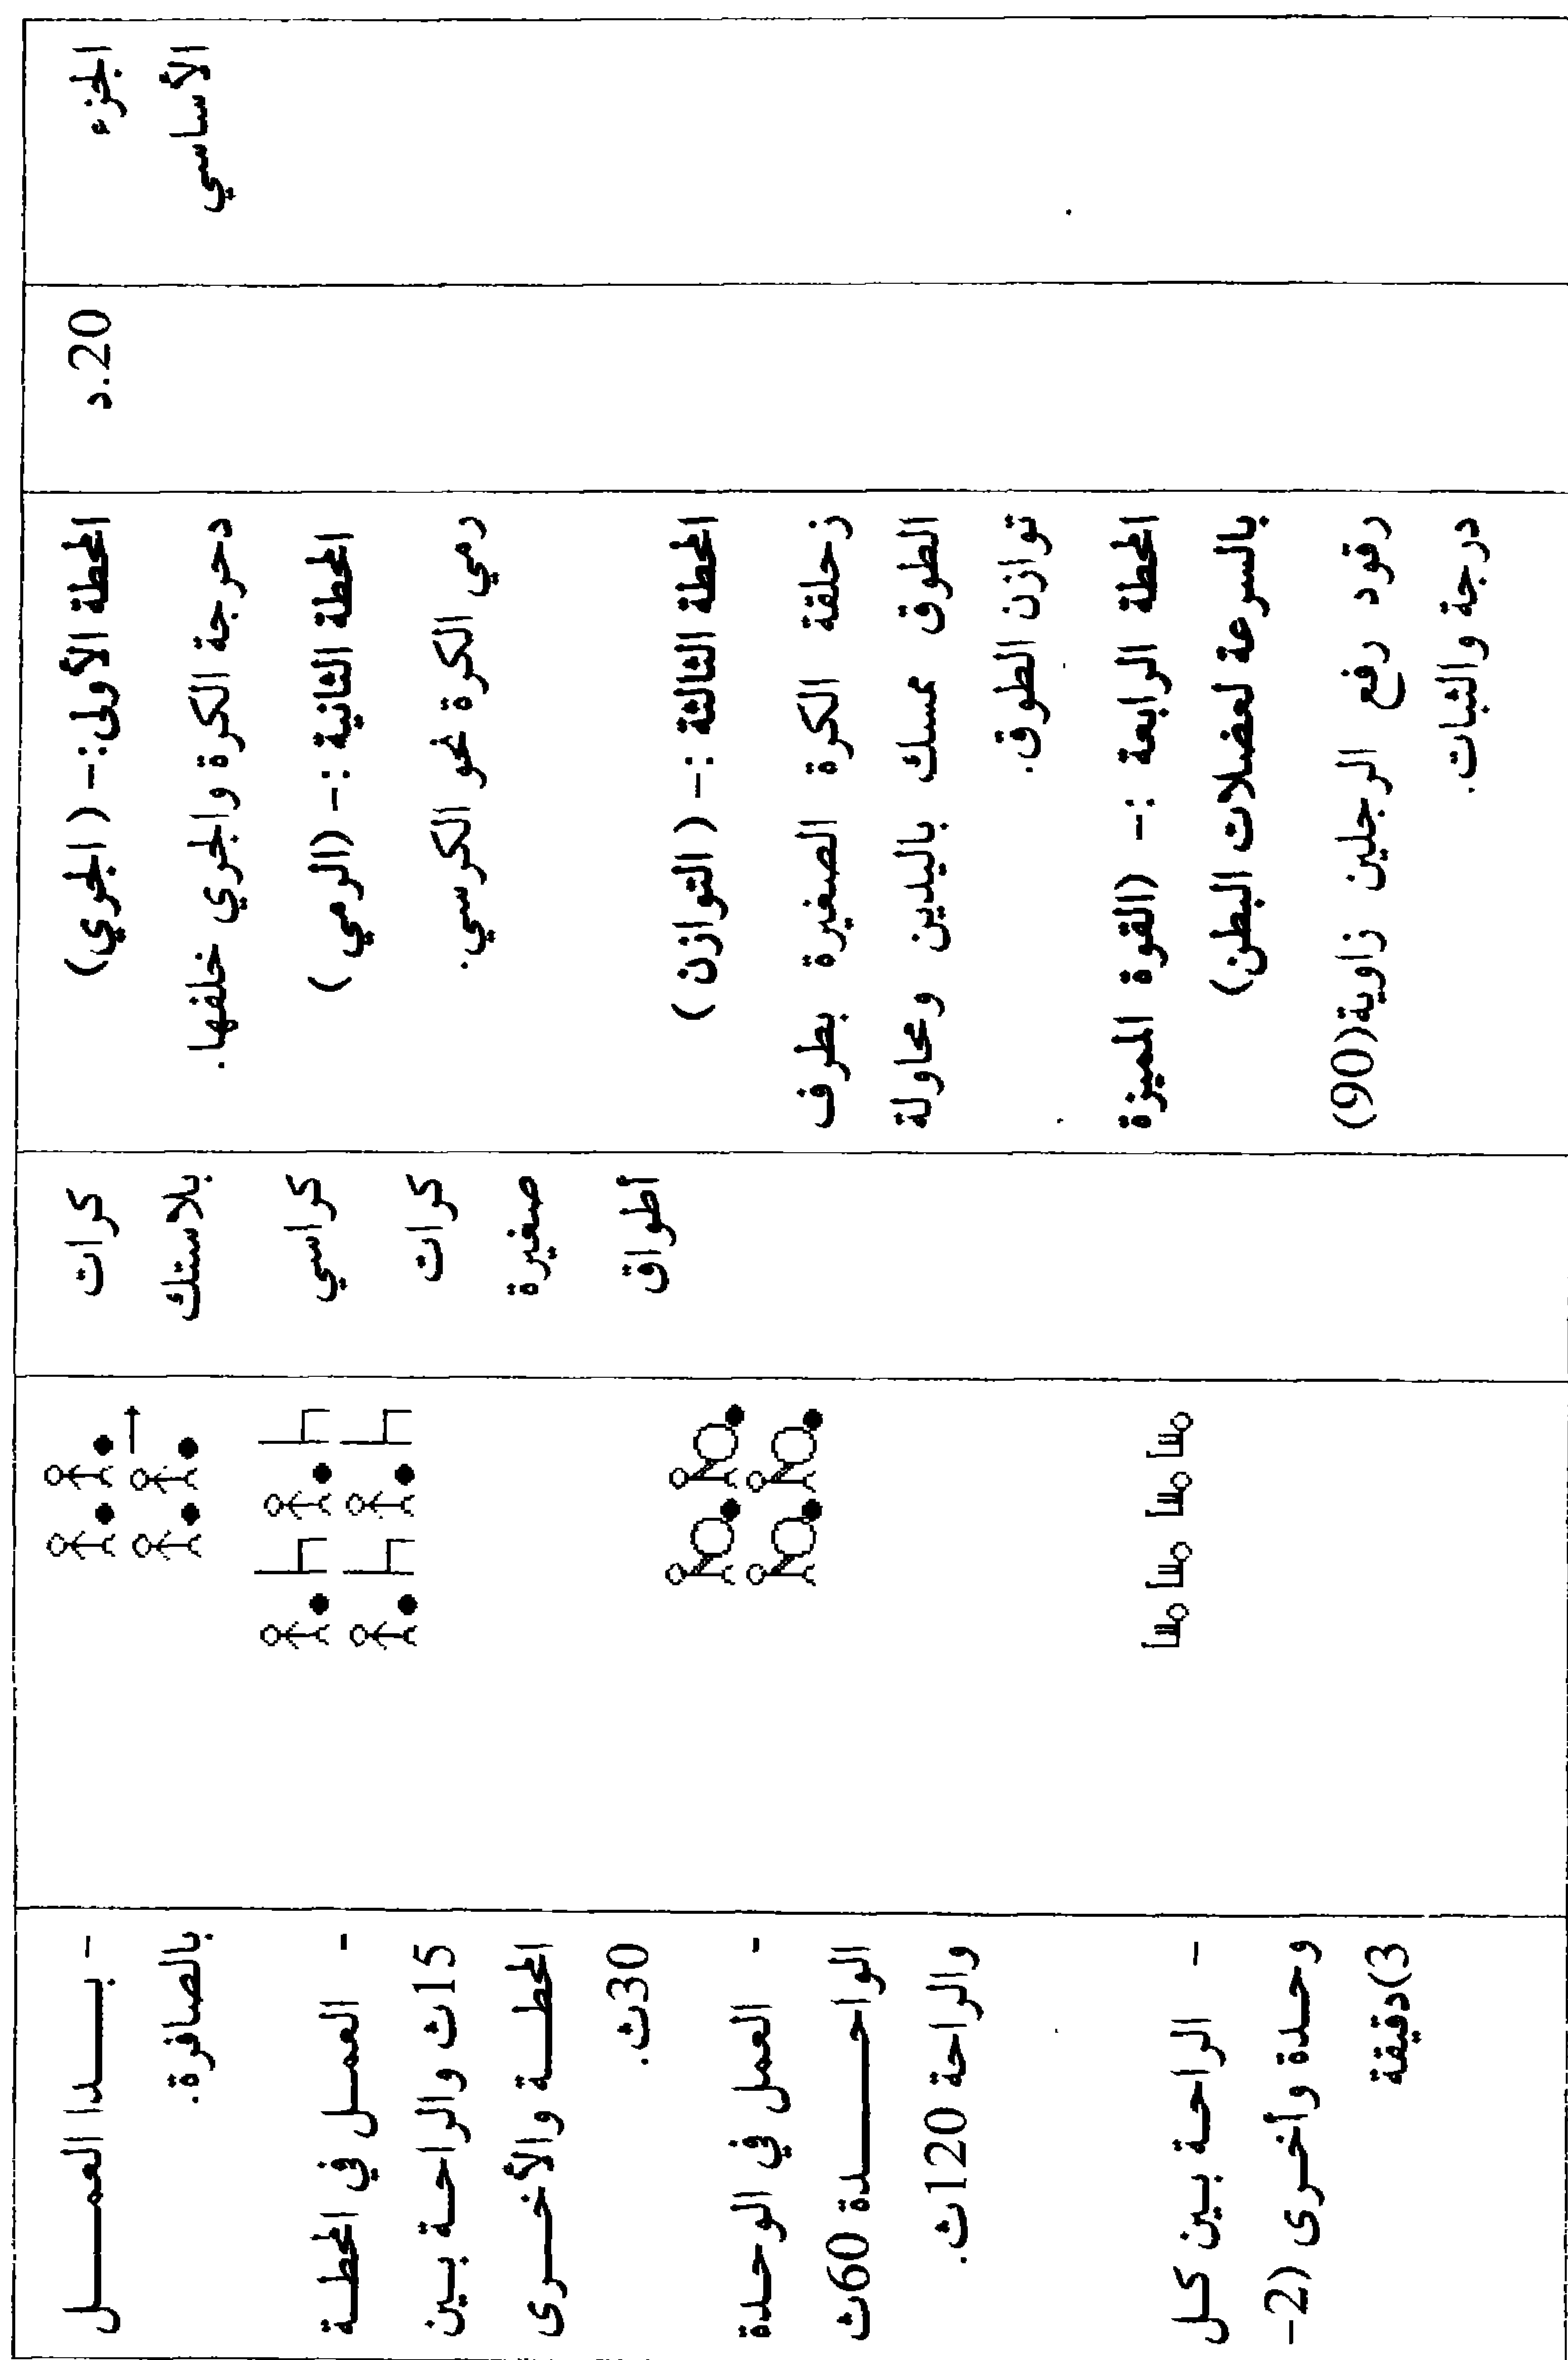 الجزء
الأساسي
20.د
المحطة الأولى:- ( الجري)
دحرجة الكرة والجري خلفها.
المحطة الثانية :- (الرمي )
رمي الكرة نحو الكرسي.
المحطة الثالثة :- ( التوازن )
زحلقة الكرة الصغيرة بطرف
الطوق ممسك باليدين ومحاولة
توازن الطوق.
المحطة الرابعة :- (القوة المميزة
بالسرعة لعضلات البطن)
رقود رفع الرجلين زاوية(90)
درجة والثبات.
كرات
بلاستك
كراسي
كرات
صغيرة
أطواق
- بـدا العمـل
بالصافرة.
- العمل في المحطة
15ث والراحة بين
المحطة والأخرى
30ث.
- العمل في الوحدة
الواحدة 60ث
والراحة 120ث.
- الراحة بين كل
وحدة وأخرى (2-
3)دقيقة